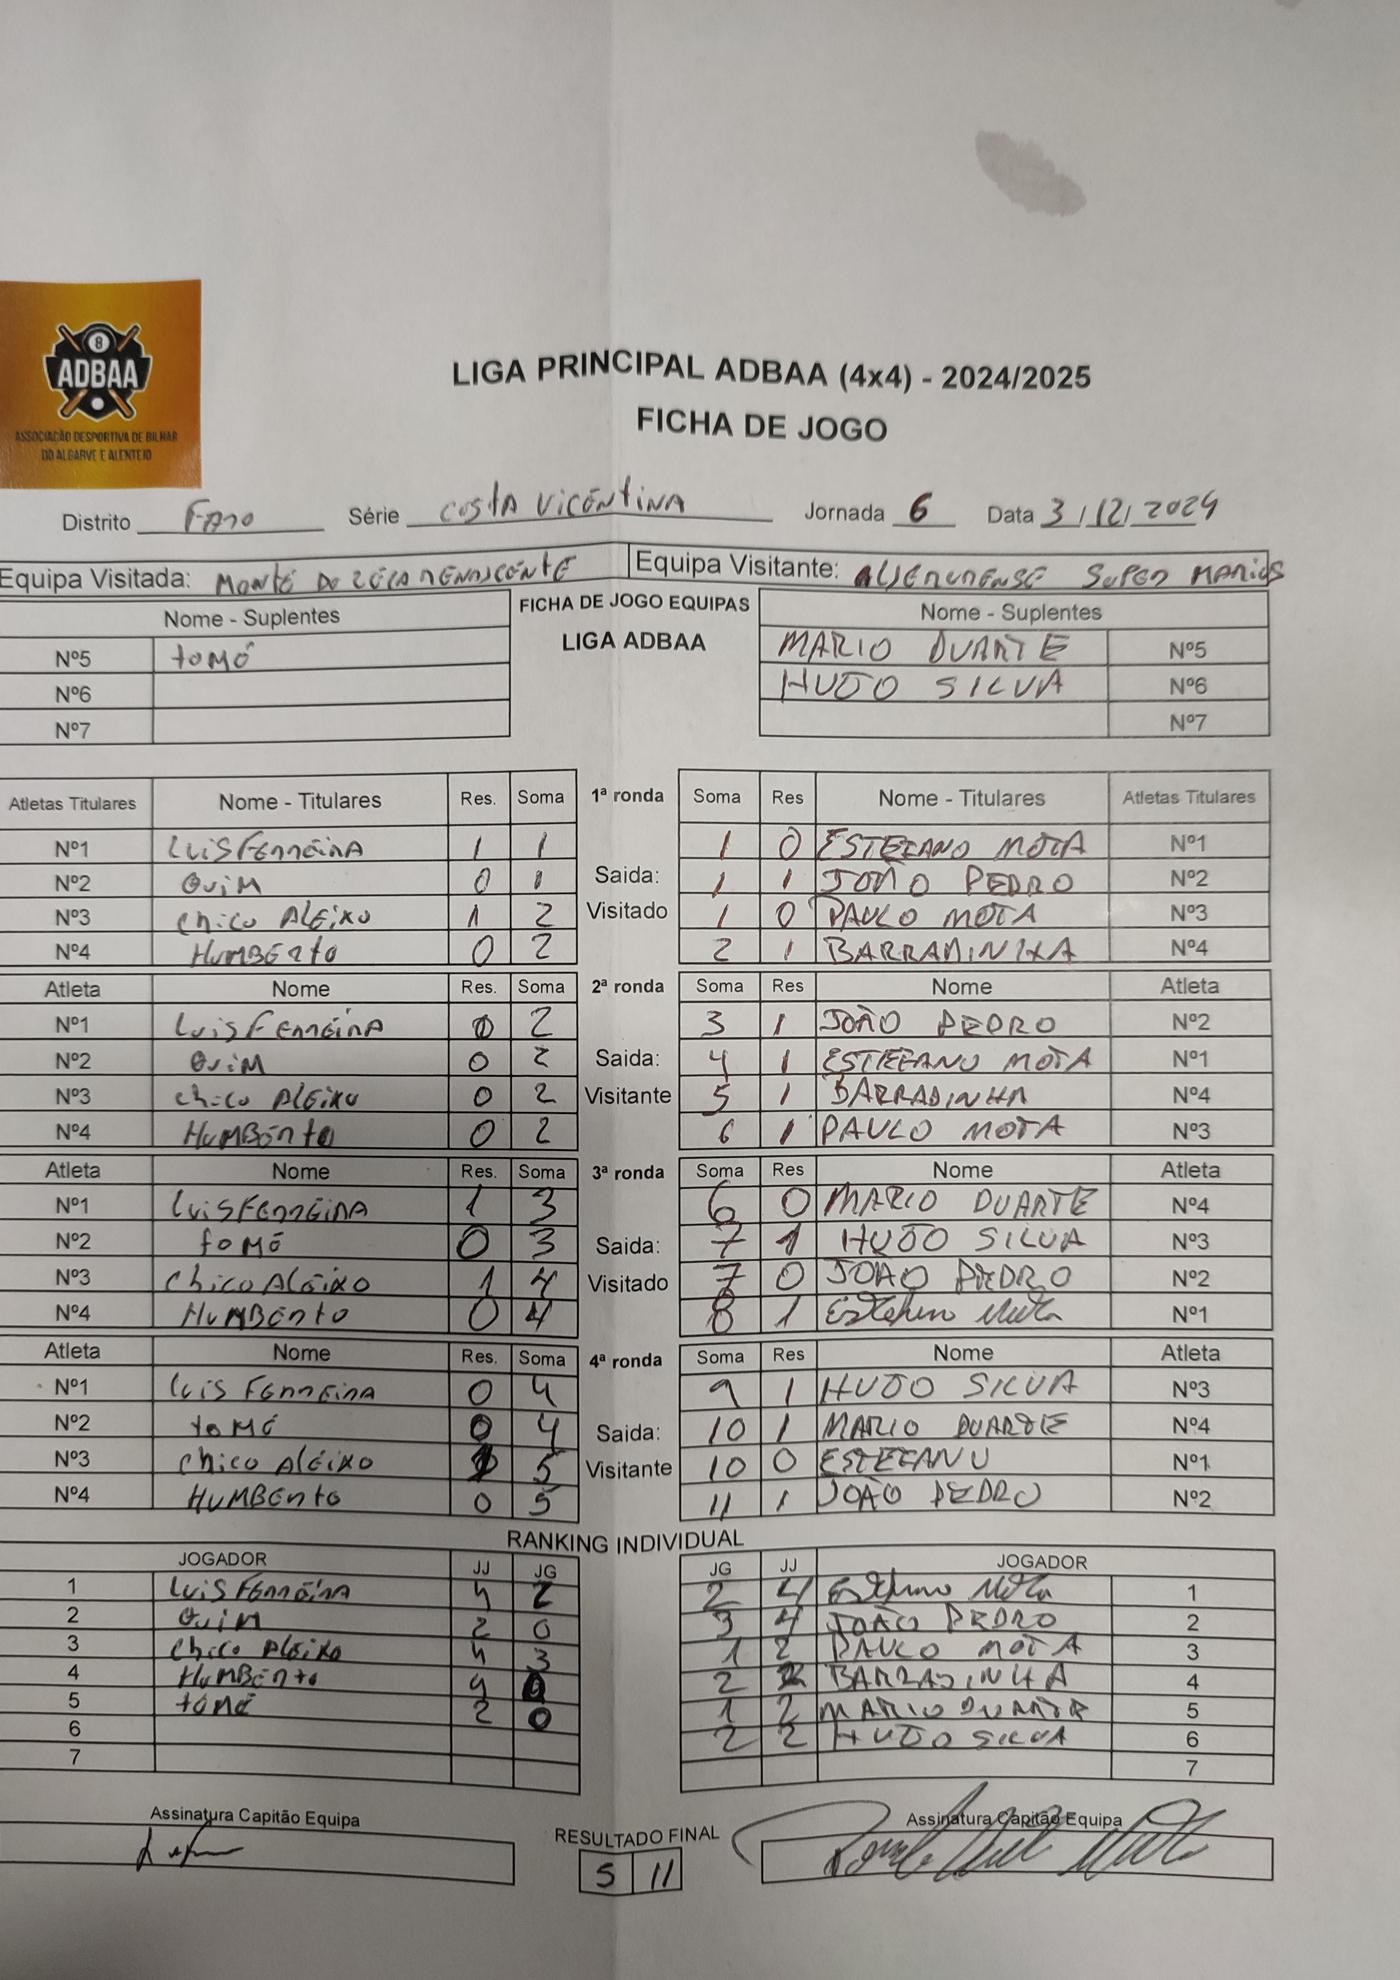 8
ADBAA
ASSOCIAÇÃO DESPORTIVA DE BILHAR
DO ALGARVE E ALENTEJO
LIGA PRINCIPAL ADBAA (4x4) - 2024/2025
FICHA DE JOGO
Distrito FARO Série COSTA VICENTINA Jornada 6 Data 3/12/2024
Equipa Visitada: MONTE DO ZECA RENASCENTE Equipa Visitante: ALJEZURENSE SUPER MARIOS
Nome - Suplentes FICHA DE JOGO EQUIPAS Nome - Suplentes
LIGA ADBAA
Nº5 TOMÉ MARIO DUARTE Nº5
Nº6 HUGO SILVA Nº6
Nº7 Nº7
Atletas Titulares Nome - Titulares Res. Soma 1ª ronda Soma Res Nome - Titulares Atletas Titulares
Nº1 LUIS FERREIRA 1 1 1 0 ESTEFANO MOTA Nº1
Nº2 QUIM 0 1 Saida: 1 1 JOÃO PEDRO Nº2
Nº3 CHICO ALEIXO 1 2 Visitado 1 0 PAULO MOTA Nº3
Nº4 HUMBERTO 0 2 2 1 BARRADINHA Nº4
Atleta Nome Res. Soma 2ª ronda Soma Res Nome Atleta
Nº1 LUIS FERREIRA 0 2 3 1 JOÃO PEDRO Nº2
Nº2 QUIM 0 2 Saida: 4 1 ESTEFANO MOTA Nº1
Nº3 CHICO ALEIXO 0 2 Visitante 5 1 BARRADINHA Nº4
Nº4 HUMBERTO 0 2 6 1 PAULO MOTA Nº3
Atleta Nome Res. Soma 3ª ronda Soma Res Nome Atleta
Nº1 LUIS FERREIRA 1 3 6 0 MARIO DUARTE Nº4
Nº2 TOMÉ 0 3 Saida: 7 1 HUGO SILVA Nº3
Nº3 CHICO ALEIXO 1 4 Visitado 7 0 JOÃO PEDRO Nº2
Nº4 HUMBERTO 0 4 8 1 Estefano Mota Nº1
Atleta Nome Res. Soma 4ª ronda Soma Res Nome Atleta
Nº1 LUIS FERREIRA 0 4 9 1 HUGO SILVA Nº3
Nº2 TOMÉ 0 4 Saida: 10 1 MARIO DUARTE Nº4
Nº3 CHICO ALEIXO 1 5 Visitante 10 0 ESTEFANO Nº1
Nº4 HUMBERTO 0 5 11 1 JOÃO PEDRO Nº2
RANKING INDIVIDUAL
JOGADOR JJ JG JG JJ JOGADOR
1 LUIS FERREIRA 4 2 2 4 Estefano Mota 1
2 QUIM 2 0 3 4 JOÃO PEDRO 2
3 CHICO ALEIXO 4 3 1 2 PAULO MOTA 3
4 HUMBERTO 4 0 2 2 BARRADINHA 4
5 TOMÉ 2 0 1 2 MARIO DUARTE 5
6 2 2 HUGO SILVA 6
7 7
Assinatura Capitão Equipa RESULTADO FINAL Assinatura Capitão Equipa
5 11